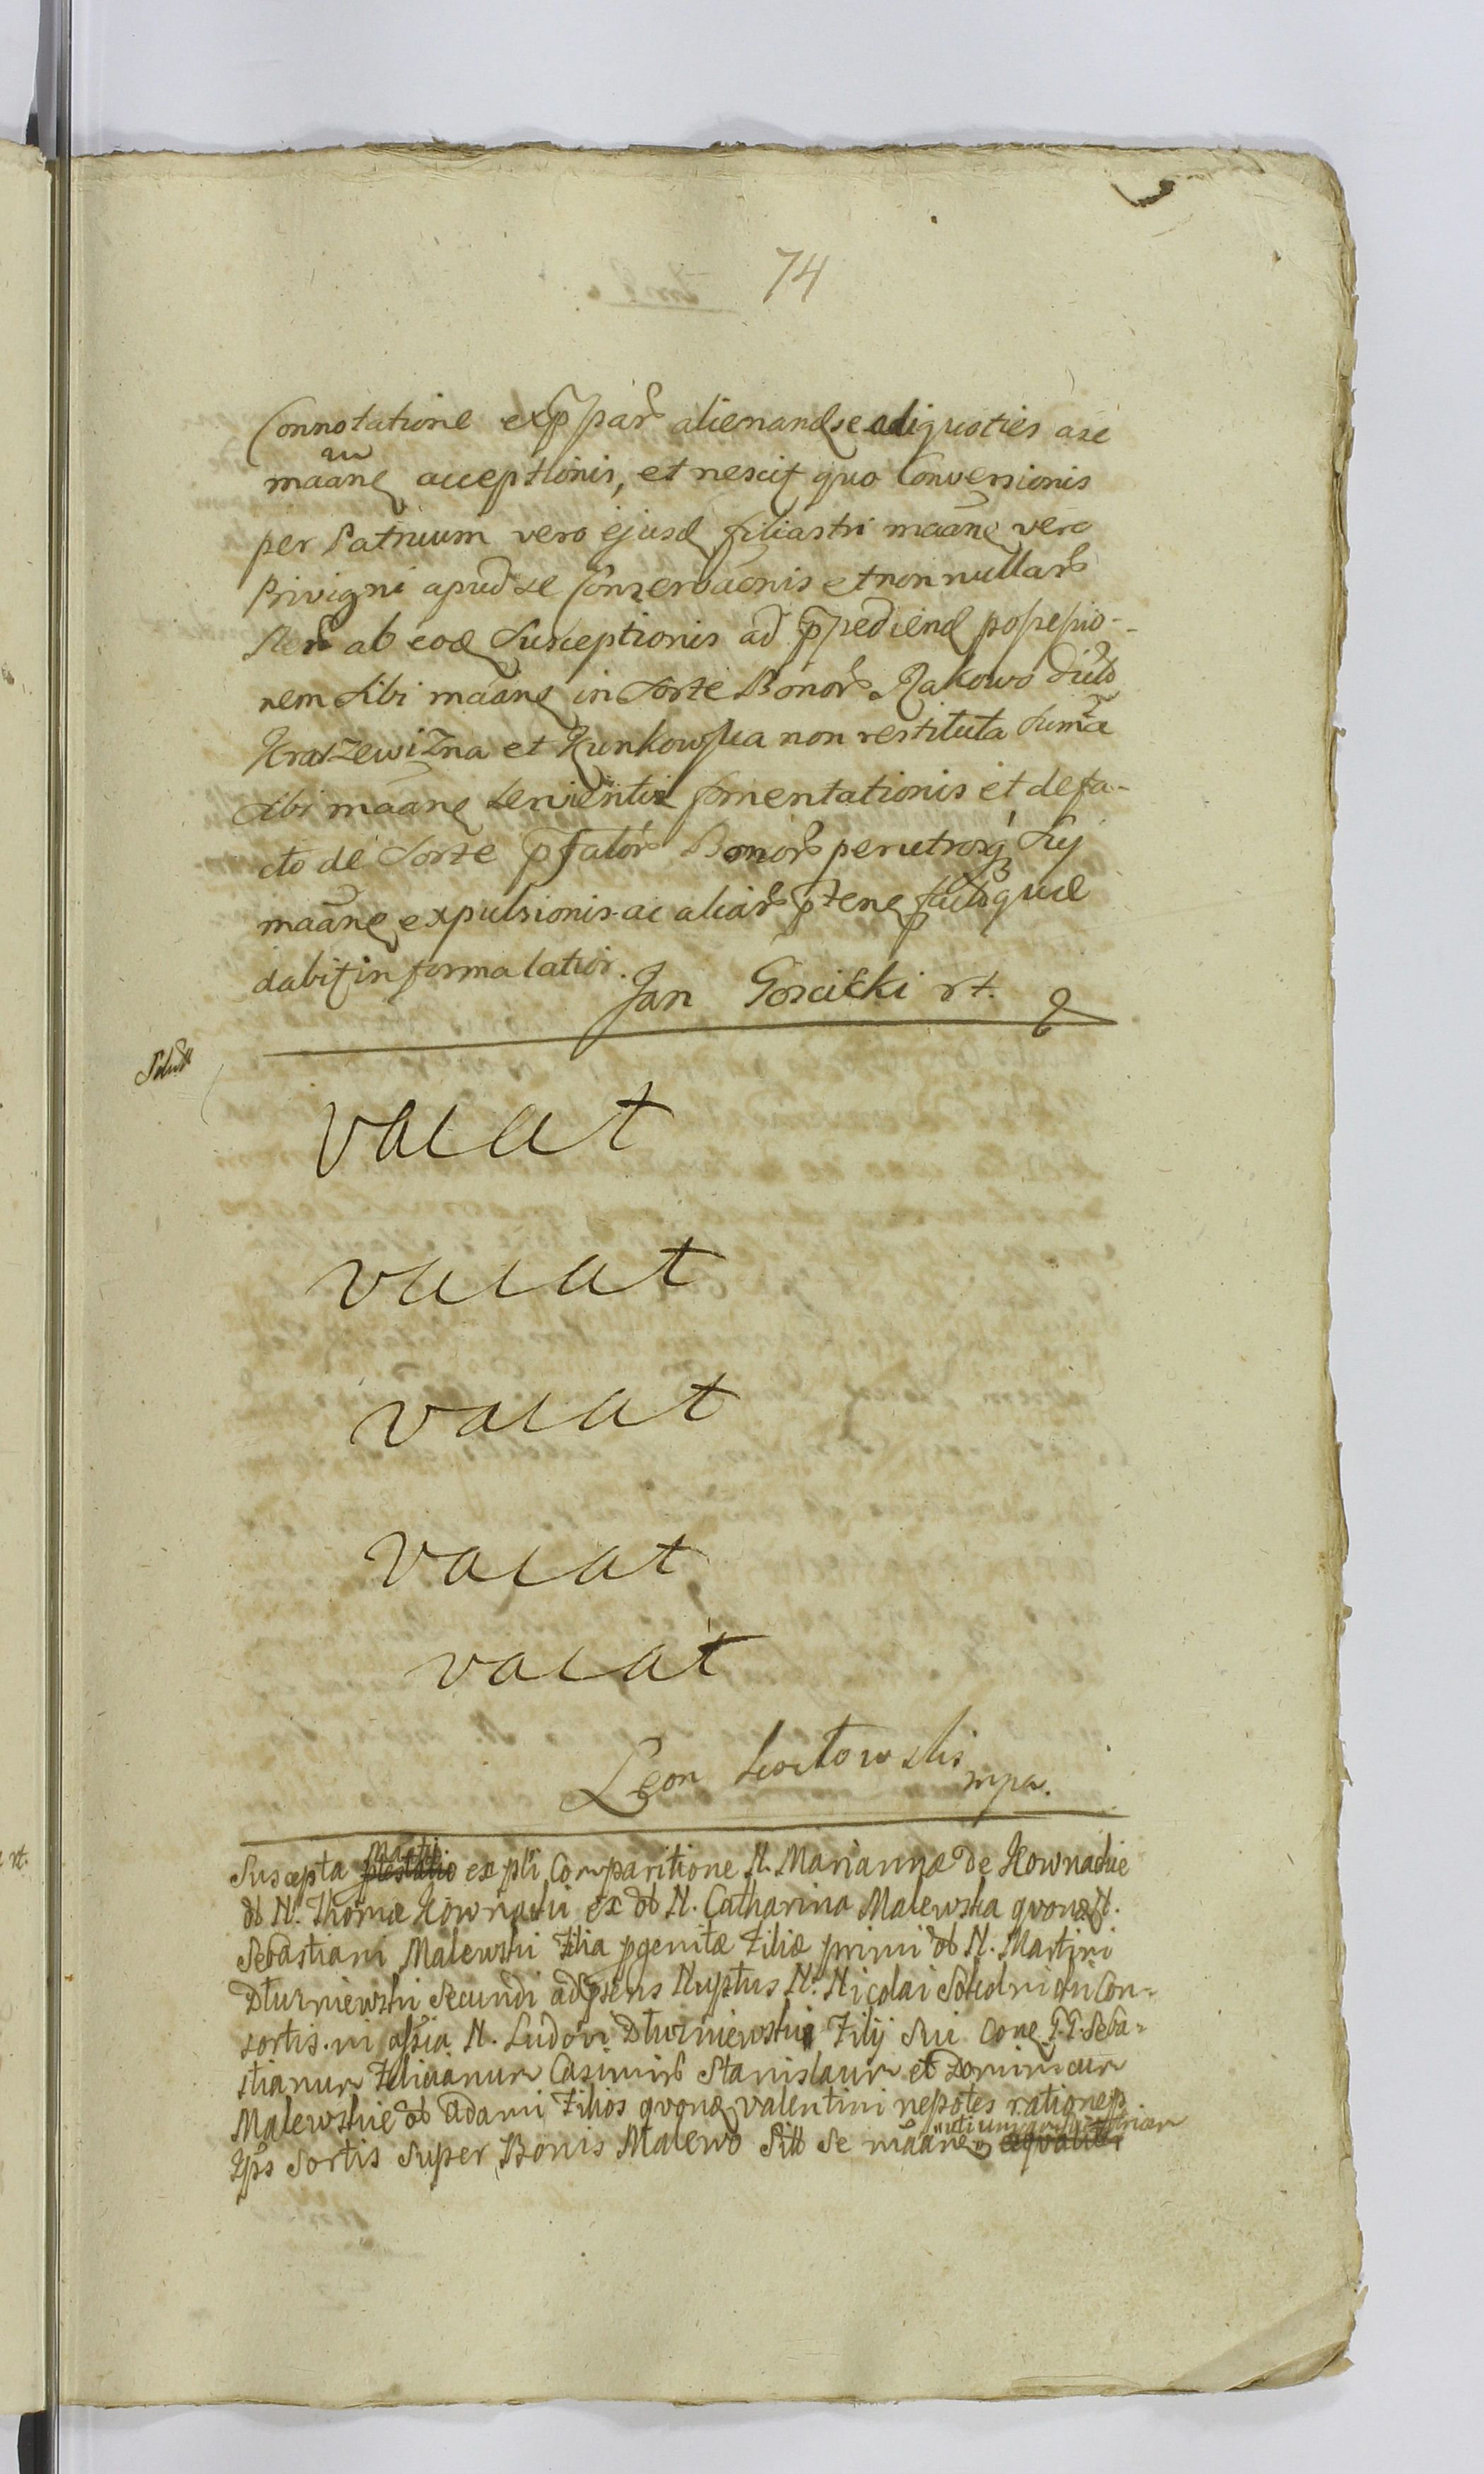 74
Connotatione exp par alienand se aliquoties a se
maane acceptionis, et nescit quo Conversionis
per Patruum vero ejusd filiastri maane vero
Privigni apud se Conservaonis et non nullar
Rer ab eod Susceptionis ad ppediend possessio-
nem Sibi maane in Sorte Bonor Rakowo dict
et Kunkowska non restituta Suma
Sibi maane servientis fomentationis et de fa-
cto de Sorte pfator Bonor per utrosq Suj
maane expulsionis ac aliar ptene fact que
dabit in forma latior.
Jan Gościcki rt.
vacat
vacat
vacat
vacat
vacat
Leon mpa.
Suscepta ex pli Comparitione N. Marianna de Kownackie
ol N. Thomæ Kownacki ex ol N. Catharina Malewska qvond N.
Sebastiani Malewski Filia pgenitæ Filiæ primi ol N. Martini
Dłuzniewski Secundi ad psens Nuptus N. Nicolai Con-
sortis. in assia N. Ludovi Dłuzniewski Filij Sui Cone G.G. Seba-
stianum Felicianum Casimir Stanislaum et Dominicum
Malewskie ol Adami Filios qvond Valentini nepotes ratione
Ips Sortis Super Bonis Malewo Sitt Se maane